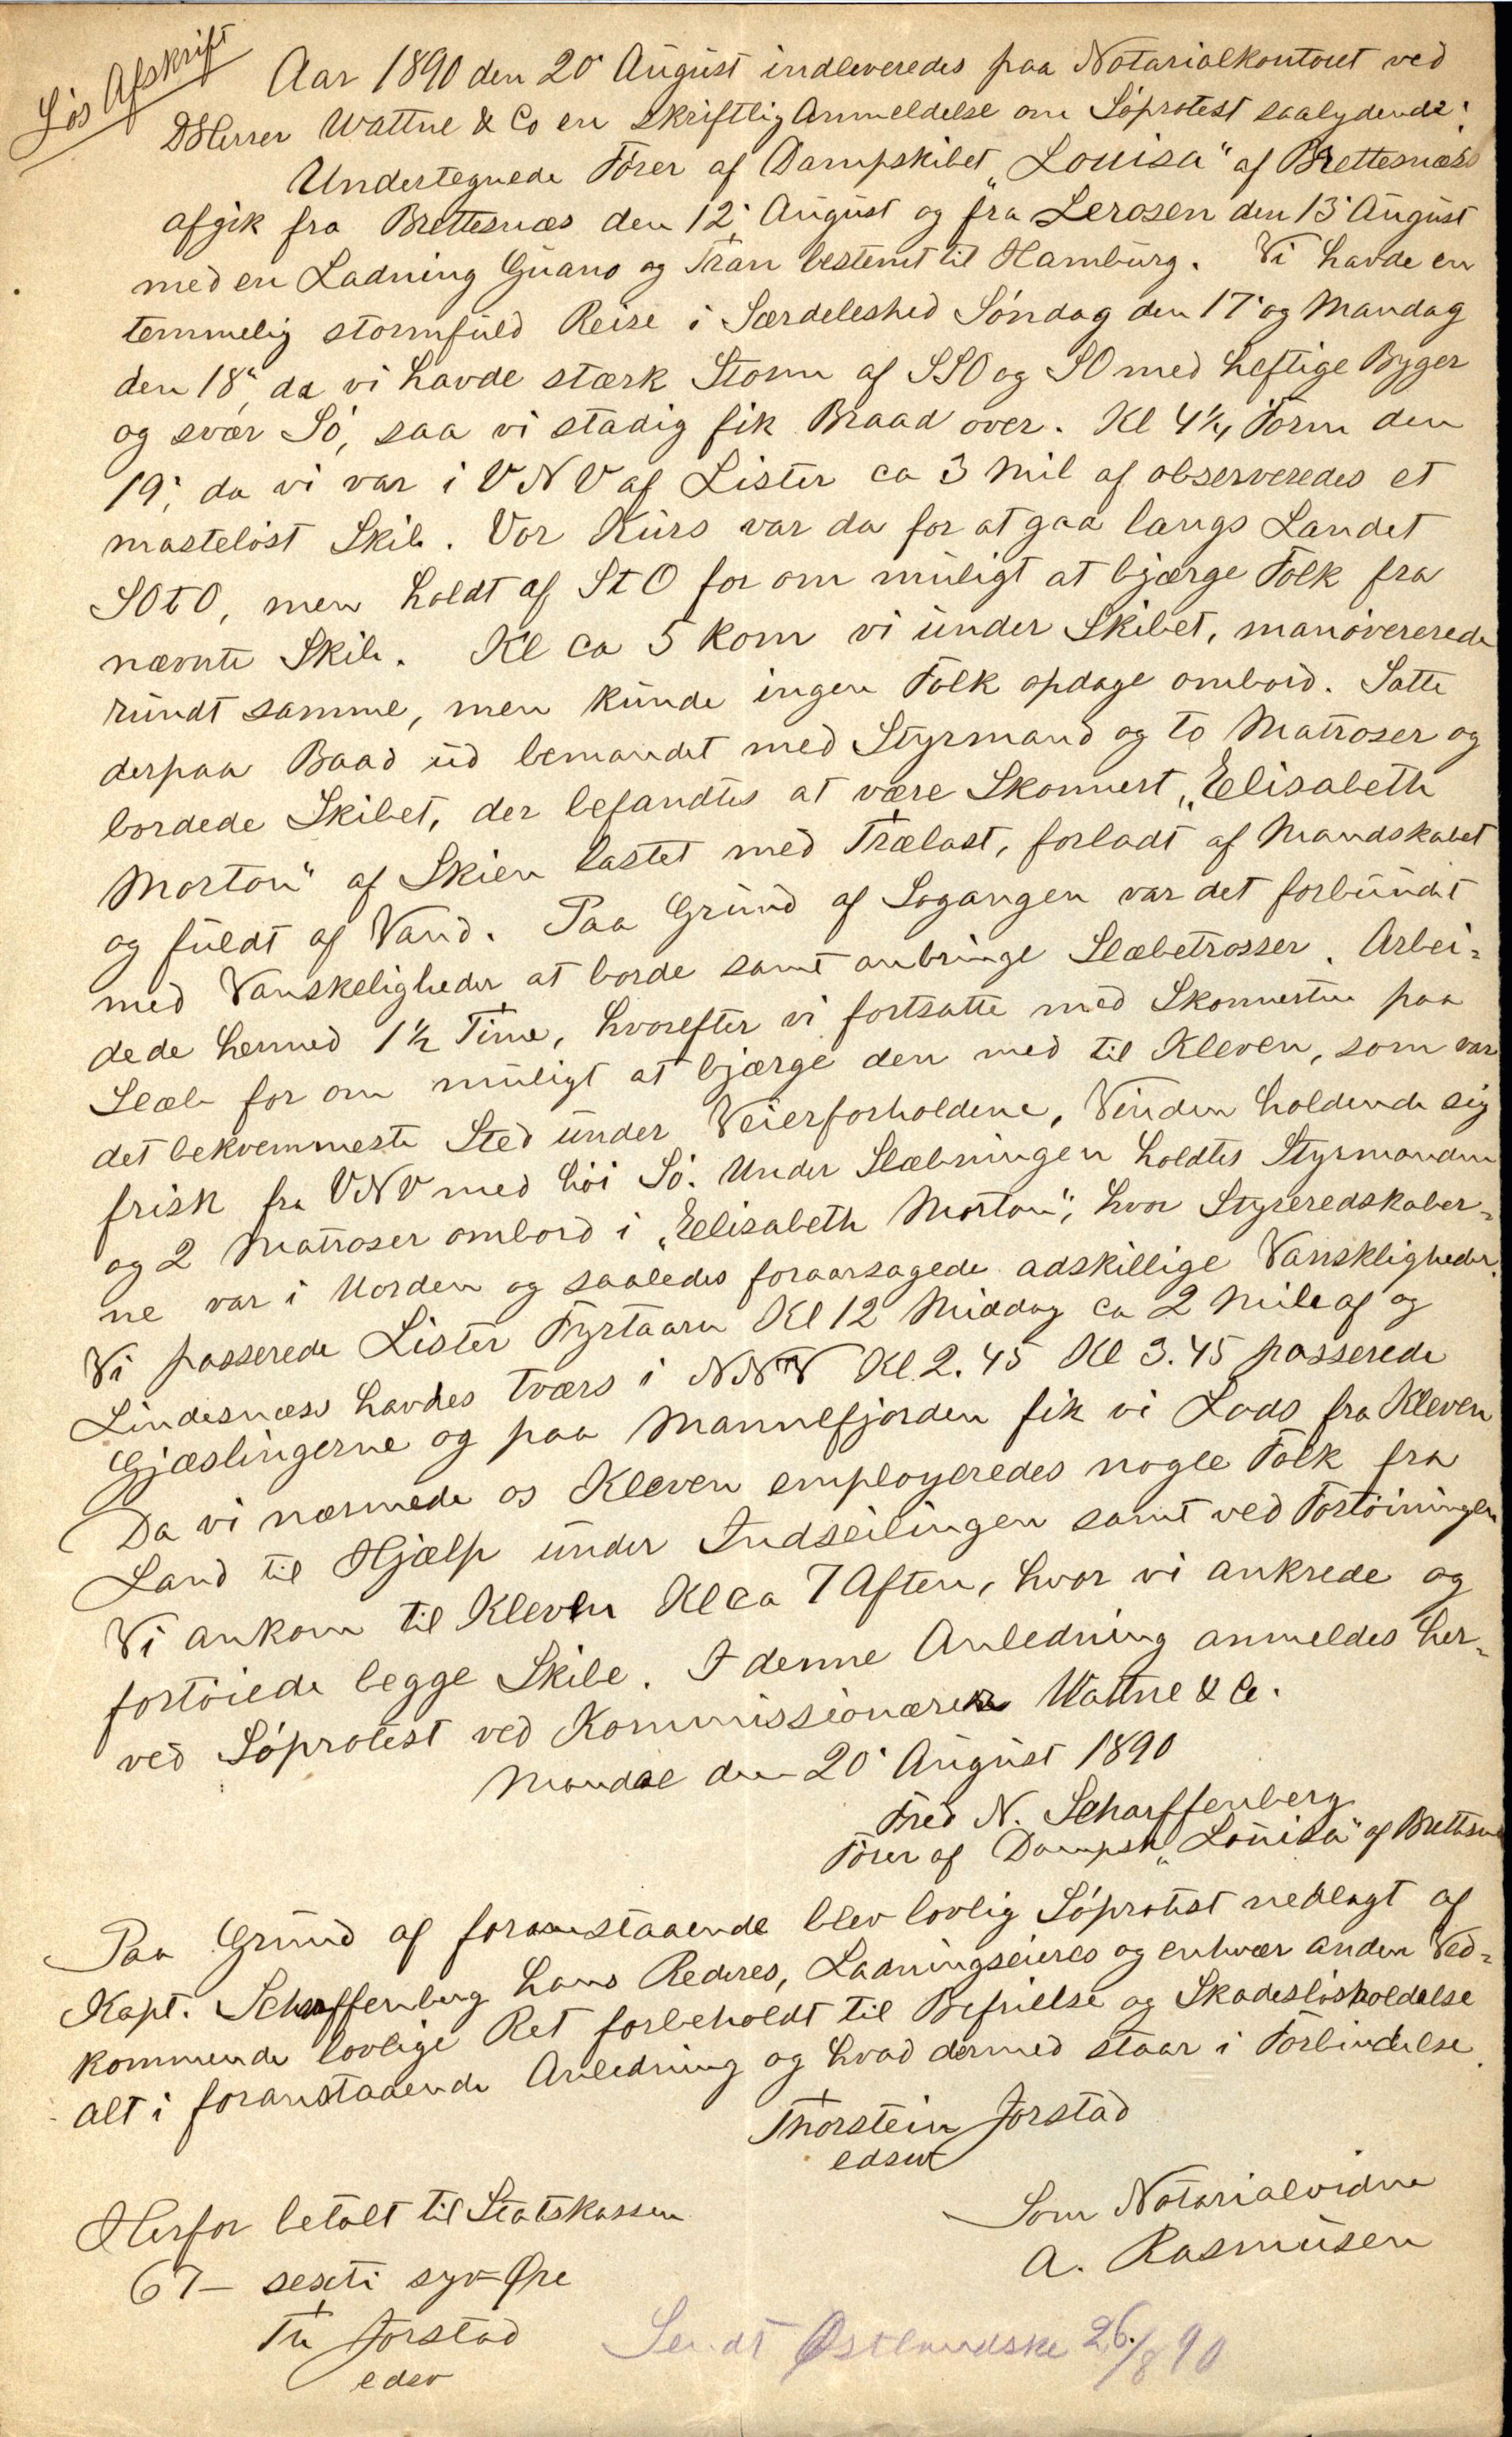 Løs Afskrift
Aar 1890 den 20' August indleveredes paa Notarialkontoret ved
DHerrer Wattne & Co en skriftlig Anmeldelse om Søprotest saalydende:
Undertegnede Fører af Dampskibet „Louisa“ af Brettesnæs
afgik fra Brettesnæs den 12' August og fra Lerosen den 13' August
med en Ladning Guano og Tran bestemt til Hamburg. Vi havde en
temmelig stormfuld Reise i Særdeleshed Søndag den 17' og Mandag
den 18', da vi havde stærk Storm af SSO og SO med heftige Byger
og svær Sø, saa vi stadig fik Braad over. Kl 4½ Form den
19', da vi var i VNV af Lister ca 3 Mil af observeredes et
masteløst Skib. Vor Kurs var da for at gaa langs Landet
SOtO, men holdt af StO for om muligt at bjærge Folk fra
nævnte Skib. Kl ca 5 kom vi under Skibet, manøvererede
rundt samme, men kunde ingen Folk opdage ombord. Satte
derpaa Baad ud bemandet med Styrmand og to Matroser og
bordede Skibet, der befandtes at være Skonnert „Elisabeth
Morton“ af Skien lastet med Trælast, forladt af Mandskabet
og fuldt af Vand. Paa Grund af Søgangen var det forbundet
med Vanskeligheder at borde samt anbringe Slæbetrosser. Arbei-
dede hermed 1½ Time, hvorefter vi fortsatte med Skonnerten paa
Slæb for om muligt at bjærge den med til Kleven, som var
det bekvemmeste Sted under Veierforholdene, Vinden holdende sig
frisk fra VNV med høi Sø. Under Slæbningen holdtes Styrmanden
og 2 Matroser ombord i „Elisabeth Morton“, hvor Styreredskaber-
ne var i Uorden og saaledes foraarsagede adskillige Vanskligheder.
Vi passerede Lister Fyrtaarn Kl 12 Middag ca 2 Mile af og
Lindesnæss havdes tværs i NNV Kl 2.45 Kl 3.45 passerede
Gjæslingerne og paa Mannefjorden fik vi Lods fra Kleven
Da vi nærmede os Kleven employeredes nogle Folk fra
Land til Hjælp under Indseilingen samt ved Fortøiningen
Vi ankom til Kleven Kl ca 7 Aften, hvor vi ankrede og
fortøiede begge Skibe. I denne Anledning anmeldes her-
ved Søprotest ved Kommissionærer Wattne & Co.
Mandal den 20' August 1890
Fred N. Scharffenberg
Fører af Dampsk „Louisa“ af Brettesnæs
Paa Grund af foranstaaende blev lovlig Søprotest nedlagt af
Kapt. Scharffenberg hans Rederes, Ladningseieres og enhvær anden Ved-
kommende lovlige Ret forbeholdt til Befrielse og Skadesløsholdelse
alt i foranstaaende Anledning og hvad dermed staar i Forbindelse.
Thorstein Jorstad
edsv
Som Notarialvidne
A. Rasmusen
Herfor betalt til Statskassen
67 – sexti syv Øre
Th Jorstad
edsv
Sendt Østlandske 26/8 90